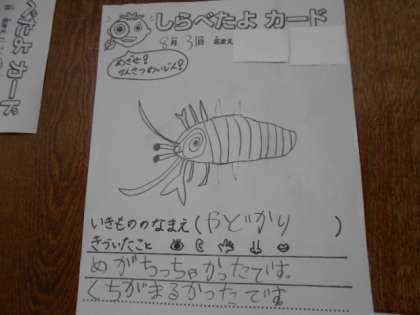 しらべたよ カード
8月 3日 なまえ
めざせ!
かんさつめいじん!
いきもののなまえ(やどかり)
きづいたこと
めがちっちゃかったです。
くちがまるかったです
たよ カード